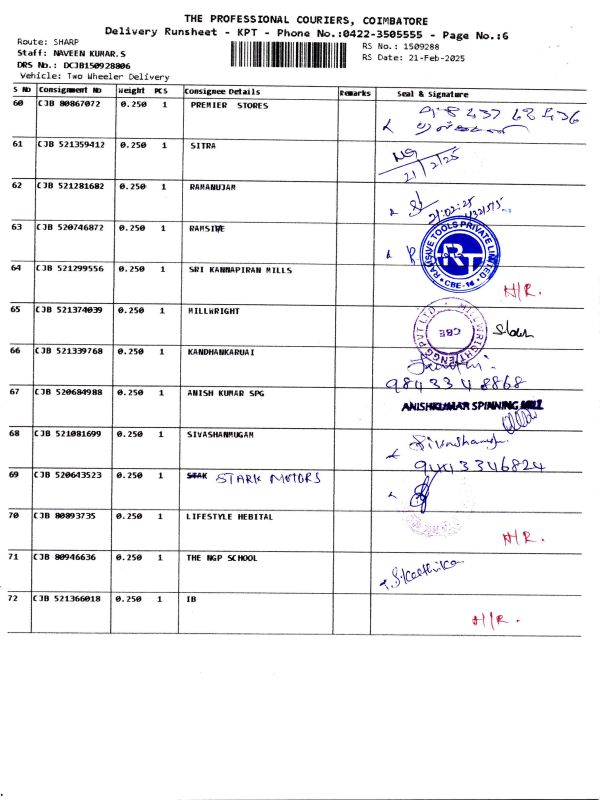 THE PROFESSIONAL COURIERS, COIMBATORE
Delivery Runsheet - KPT - Phone No.:0422-3505555 - Page No.:6
Route: SHARP
RS No.: 1509288
Staff: NAVEEN KUMAR.S
RS Date: 21-Feb-2025
DRS No.: DCJB150928806
Vehicle: Two Wheeler Delivery
S No Consignment No Weight PCS Consignee Details Remarks Seal & Signature
60 CJB 80867072 0.250 1 PREMIER STORES
61 CJB 521359412 0.250 1 SITRA
21/2/25
62 CJB 521281682 0.250 1 RAMANUJAM
21:02:25
63 CJB 520746872 0.250 1 RAMSIVE
RAMSIVE TOOLS PRIVATE LIMITED
RT
CBE-14
64 CJB 521299556 0.250 1 SRI KANNAPIRAN MILLS H/R.
65 CJB 521374039 0.250 1 MILLWRIGHT
MILLWRIGHT ENGG PVT LTD
CBE
66 CJB 521339768 0.250 1 KANDHANKARUAI
9843348868
67 CJB 520684988 0.250 1 ANISH KUMAR SPG
ANISHKUMAR SPINNING MILL
68 CJB 521081699 0.250 1 SIVASHANMUGAM
69 CJB 520643523 0.250 1 STAK STARK MOTORS
70 CJB 80893735 0.250 1 LIFESTYLE HEBITAL H/R.
71 CJB 80946636 0.250 1 THE NGP SCHOOL
72 CJB 521366018 0.250 1 IB H/R.